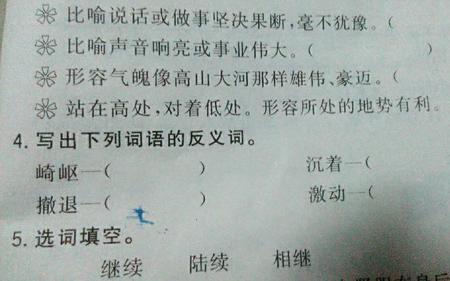 ❀ 比喻说话或做事坚决果断,毫不犹豫。(
❀ 比喻声音响亮或事业伟大。(　　　)
❀ 形容气魄像高山大河那样雄伟、豪迈。(
❀ 站在高处,对着低处。形容所处的地势有利。
4. 写出下列词语的反义词。
崎岖—(　　　) 沉着—(
撤退—(　　　) 激动—(
5. 选词填空。
继续 陆续 相继